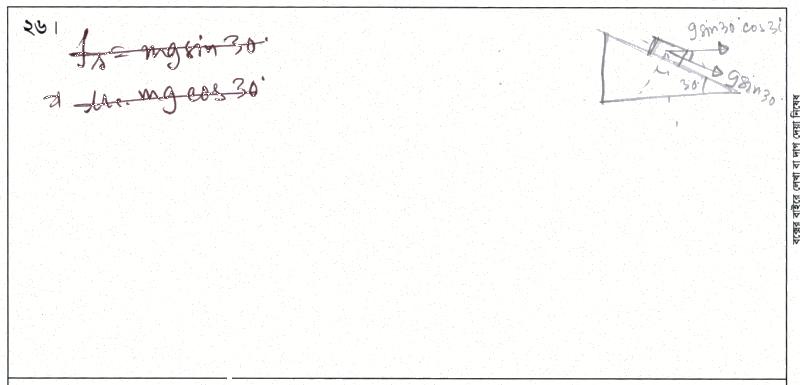 ২৬।
f_s = mg sin 30°
⇒ mg cos 30°
g sin 30° cos 3
g sin 30
μ
30°
বক্সের বাইরে লেখা বা দাগ দেয়া নিষেধ